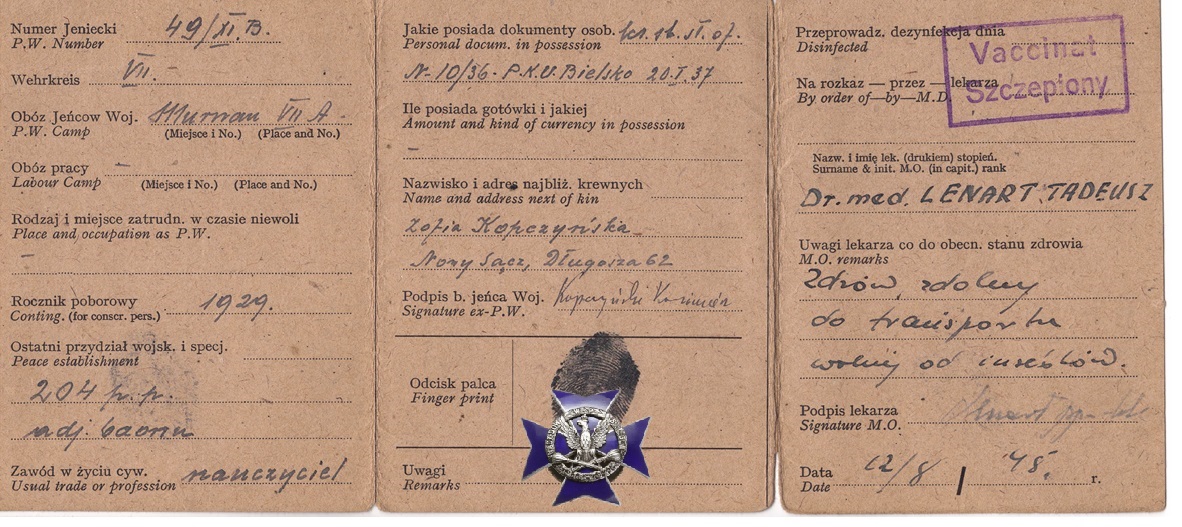 Numer Jeniecki 49/XI.B.
P.W. Number
Wehrkreis VII.-
Obóz Jeńcow Woj. Murnau VII A -
P.W. Camp (Miejsce i No.) (Place and No.)
Obóz pracy -
Labour Camp (Miejsce i No.) (Place and No.)
Rodzaj i miejsce zatrudn. w czasie niewoli
Place and occupation as P.W.
-
Rocznik poborowy 1929.
Conting. (for conscr. pers.)
Ostatni przydział wojsk. i specj.
Peace establishment
204 p.p.
adj. baonu
Zawód w życiu cyw. nauczyciel
Usual trade or profession
Jakie posiada dokumenty osob. ks. st. of.
Personal docum. in possession
N-10/36 - P.K.U. Bielsko 20.I.37
Ile posiada gotówki i jakiej
Amount and kind of currency in possession
-
Nazwisko i adres najbliż. krewnych
Name and address next of kin
Zofia Kopczyńska
Nowy Sącz, Długosza 62
Podpis b. jeńca Woj. Kopczyński Kazimierz
Signature ex-P.W.
Odcisk palca
Finger print
Uwagi
Remarks
Przeprowadz. dezynfekcja dnia
Disinfected
Vaccinat
Szczepiony
Na rozkaz — przez — lekarza
By order of—by—M.D.
Nazw. i imię lek. (drukiem) stopień.
Surname & init. M.O. (in capit.) rank
Dr. med. LENART TADEUSZ
Uwagi lekarza co do obecn. stanu zdrowia
M.O. remarks
Zdrów, zdolny
do transportu
wolny od insektów.
Podpis lekarza Lenart
Signature M.O.
Data 12/8 / 45. r.
Date